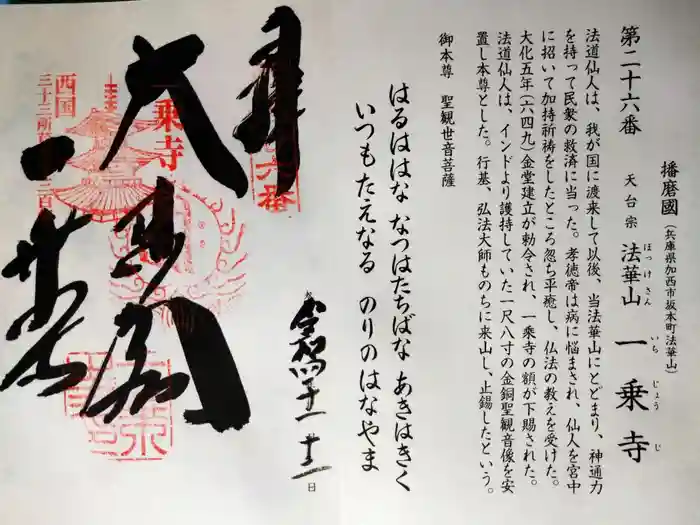 第二十六番
播磨國(兵庫県加西市坂本町法華山)
天台宗 法華山 一乗寺
ほっけさん いちじょうじ
法道仙人は、我が国に渡来して以後、当法華山にとどまり、神通力
を持って民衆の救済に当った。孝徳帝は病に悩まされ、仙人を宮中
に招いて加持祈祷をしたところ忽ち平癒し、仏法の教えを受けた。
大化五年(六四九)金堂建立が勅令され、一乗寺の額が下賜された。
法道仙人は、インドより護持していた一尺八寸の金銅聖観音像を安
置し本尊とした。行基、弘法大師ものちに来山し、止錫したという。
御本尊 聖観世音菩薩
はるははな なつはたちばな あきはきく
いつもたえなる のりのはなやま
奉拝
令和四年十一月十三日
六番
大悲閣
乗寺
一乗寺
西国
三十三所